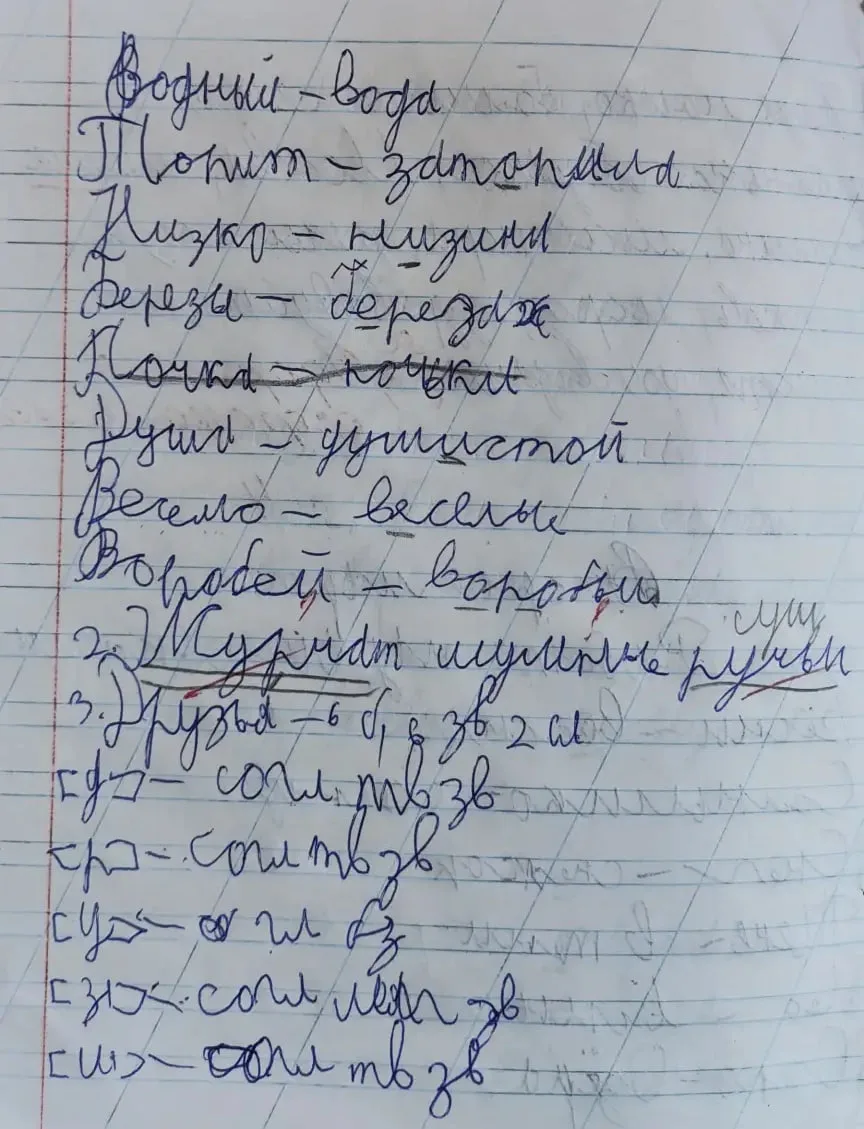 Водный – вода
Топит – затопила
Низко – низина
Березы – березах
Почка – почьки
Душа – душистой
Весело – веселые
Воробей – воробьи
сущ
2. Журчат шумные ручьи
3. Друзья – 6 б, 6 зв 2 сл
[д] – согл тв зв
[р] – согл тв зв
[у] – гл бз
[з] – согл мяг зв
– согл тв зв